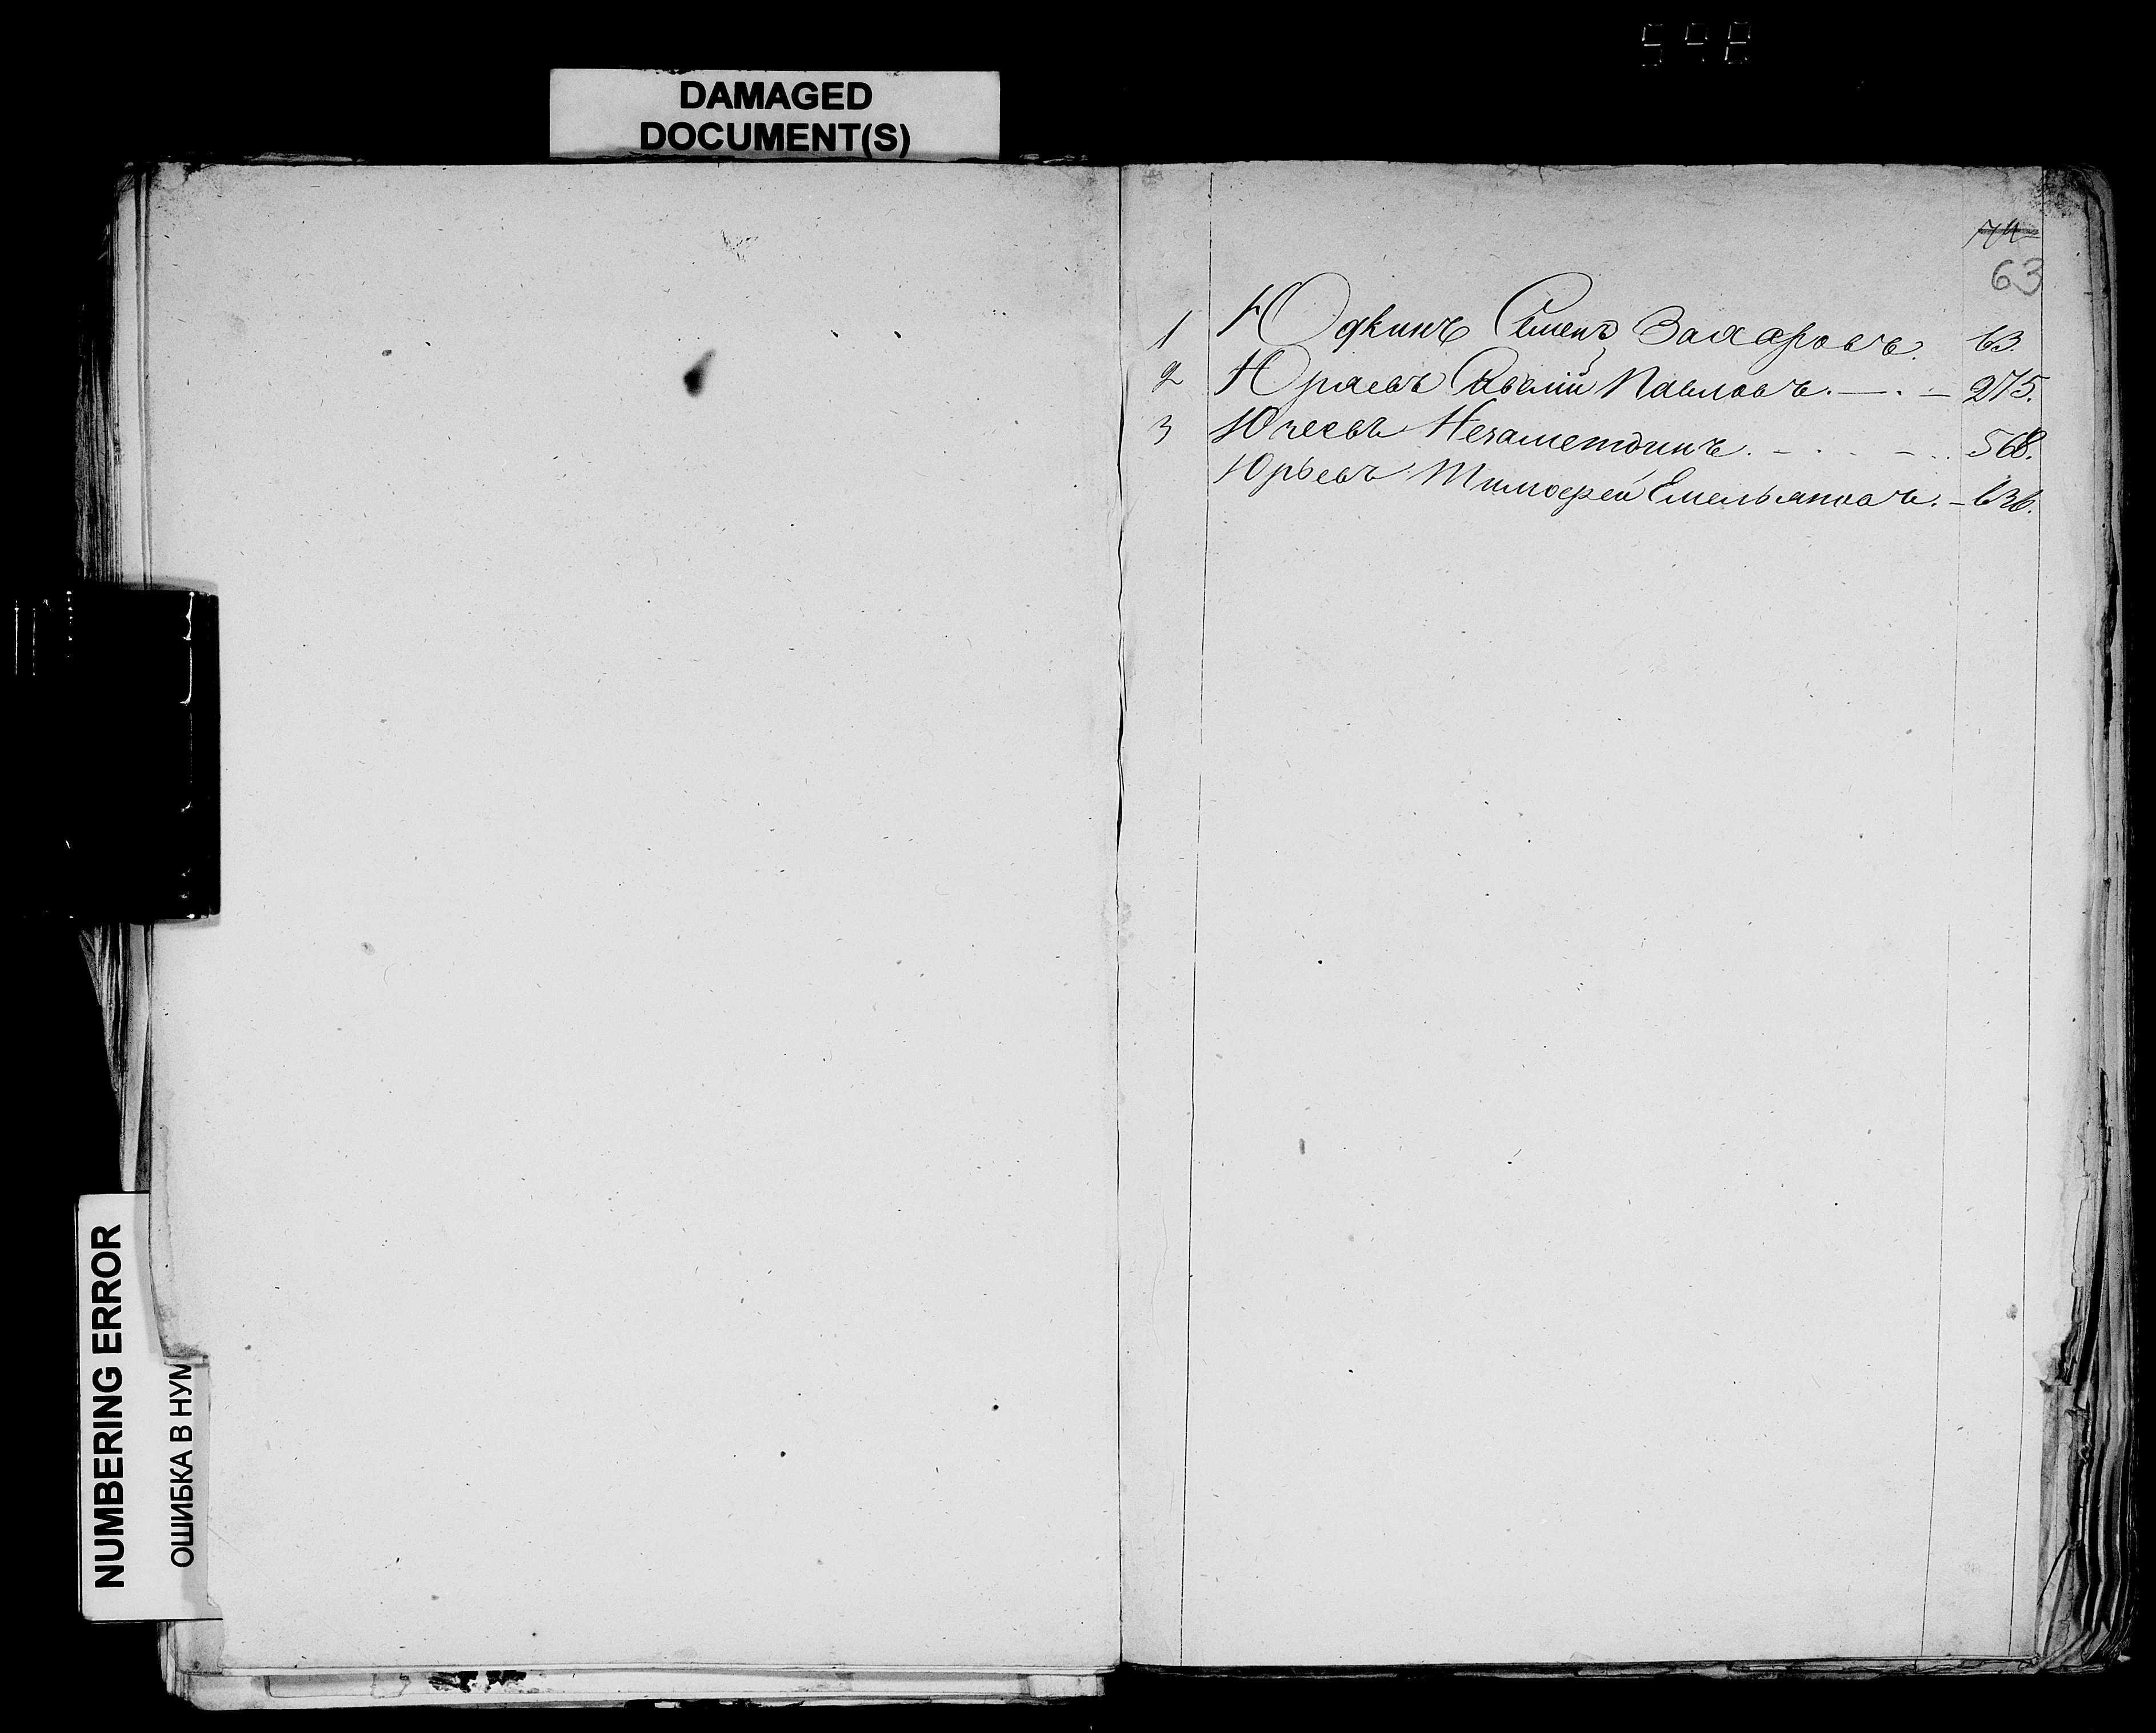 548
DAMAGED
DOCUMENT(S)
74
63
1 Юдкинъ Семенъ Захаровъ. 63.
2 Юраевъ Савелій Павловъ. — . — 275.
3 Юсеевъ Незаметдинъ. - . . - .. 568.
Юрьевъ Тимофей Емельяновъ. - 636.
NUMBERING ERROR
ОШИБКА В НУМ